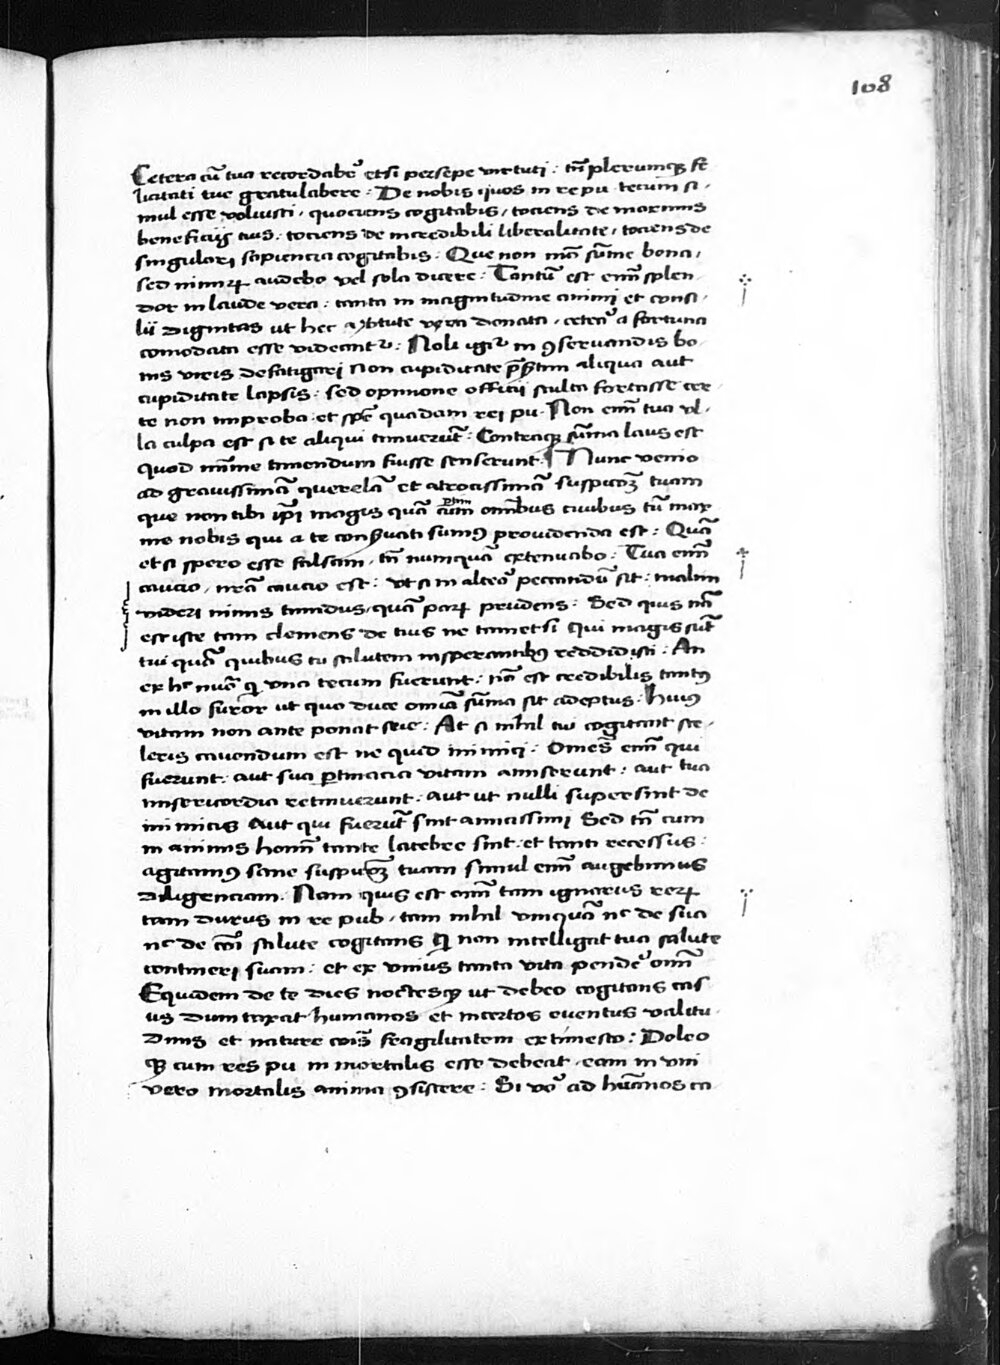 108
Cetera cū tua recordabeʳ etsi persepe virtuti : tn̄ plerumqꝫ fe
licitati tue gratulabere : De nobis quos in re pu · tecum si ·
mul esse voluisti · quociens cogitabis · tociens de maximis
beneficijs tuis : tociens de incredibili liberalitate · tociens de
singulari sapiencia cogitabis : Que non mō sūme bona ·
sed nimiꝝ audebo vel sola dicere : Tantus̄ est enī splen
dor in laude vera : tanta in magnitudine animi et consi ·
lii dignitas ut hec a virtute donata · ceteraʳ a fortuna
comodata esse videantʳ : Noli igiʳ in ꝯservandis bo ·
nis viris defatigari Non cupiditate p̄sertim aliqua aut
cupiditate lapsis : sed opinione officii stulta fortasse cer ·
te non improba : et spē quadam rei pu · Non enī tua ul ·
la culpa est si te aliqui timuerūt : Contraqꝫ sūma laus est
quod minīe timendum fuisse senserunt · Nunc venio
ad gravissimā querelā et atrocissimā suspicōꝫ tuam
que non tibi ip̄i magis quā cum omībus civibus tū max
me nobis qui a te conservati sumus providenda est : Quā
etsi spero esse falsam · tn̄ numquā extenuabo : Tua enī
caucio · nrā caucio est : ut si in alteroʳ peccandū sit : malim
videri nimis timidus · quā paꝝ prudens : Sed quis nā
est iste tam clemens de tuis ne tametsi qui magis sūt
tui quā quibus tu salutem insperantibꝰ reddidisti : An
ex hᶜ nūo qͥ una tecum fuerunt : nō est credibilis tantꝰ
in illo furor ut quo duce omīa sūma sit adeptus : huiꝰ
vitam non ante ponat seie : At si nihil tui cogitant sce ·
leris cavendum est ne quid inimici : Omēs enī qui
fuerunt : aut sua ꝑtinacia vitam amiserunt : aut tua
misericordia retinuerunt : aut ut nulli supersint de
inimicis Aut qui fuerūt sint amicissimi Sed tn̄ cum
in animis homīn tante latebre sint : et tanti recessus :
agitamꝰ sane suspicōꝫ tuam simul enī augebimus
diligenciam · Nam quis est omī tam ignarus reꝝ
tam durus in re pub · tam nihil umquā nᶜ de sua
nᶜ de cōi salute cogitans qͥ non intelligat tua salute
contineri suam : et ex unius tanta vita pendeʳ omī
Equidem de te dies noctesqꝫ ut debeo cogitans cas
us dum taxat humanos et incertos eventus valitu ·
dinis et nature cōis fragilitatem extimesco : Doleo
qꝫ cum res pu in mortalis esse debeat · eam in uni
vero mortalis anima ꝯsistere : Si vōʳ ad hūanos ca